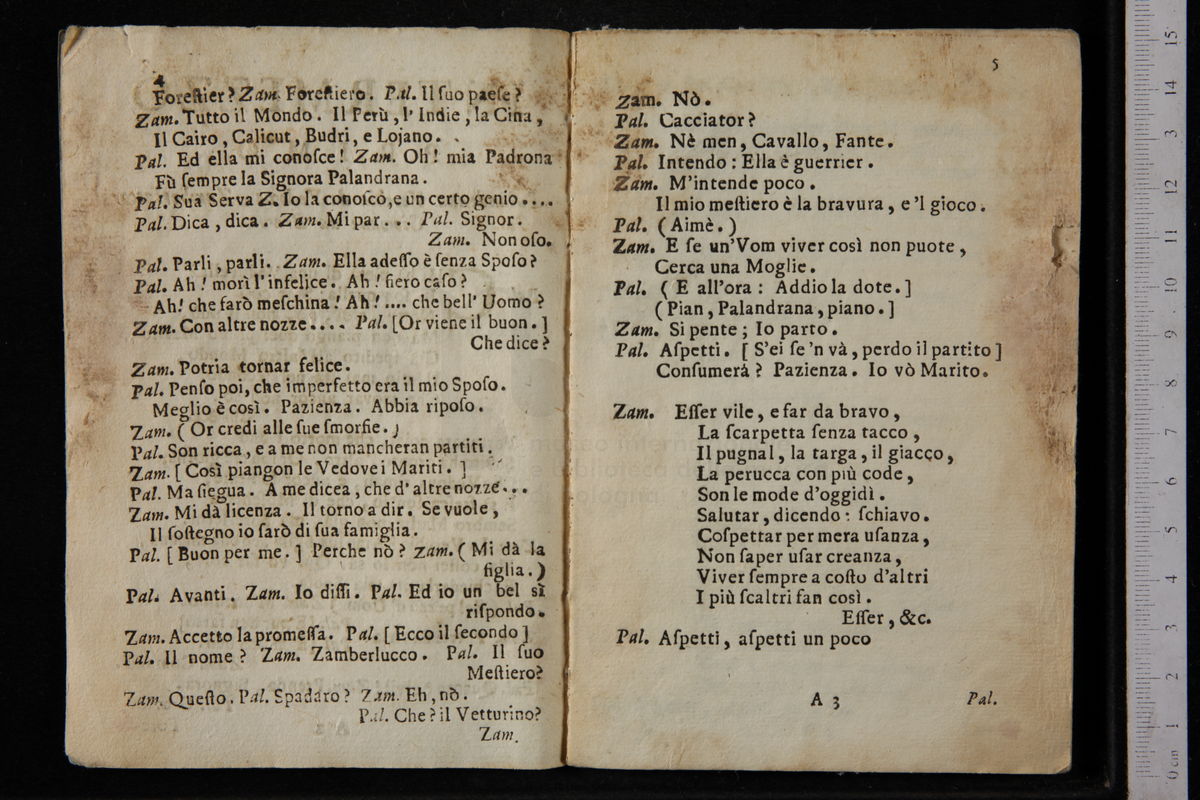 4
Foreſtier? Zam. Foreſtiero. Pal. Il ſuo paeſe?
Zam. Tutto il Mondo. Il Perù, l' Indie, la Cina,
Il Cairo, Calicut, Budri, e Lojano.
Pal. Ed ella mi conoſce! Zam. Oh! mia Padrona
Fù ſempre la Signora Palandrana.
Pal. Sua Serva Z. Io la conoſcò, e un certo genio ....
Pal. Dica, dica. Zam. Mi par... Pal. Signor.
Zam. Non oſo.
Pal. Parli, parli. Zam. Ella adeſſo è ſenza Spoſo?
Pal. Ah! morì l'infelice. Ah! fiero caſo?
Ah! che farò meſchina! Ah! .... che bell' Uomo?
Zam. Con altre nozze.... Pal. [Or viene il buon.]
Che dice?
Zam. Potria tornar felice.
Pal. Penſo poi, che imperfetto era il mio Spoſo.
Meglio è così. Pazienza. Abbia ripoſo.
Zam. (Or credi alle ſue ſmorfie.)
Pal. Son ricca, e a me non mancheran partiti.
Zam. [Così piangon le Vedove i Mariti.]
Pal. Ma ſiegua. A me dicea, che d'altre nozze...
Zam. Mi dà licenza. Il torno a dir. Se vuole,
Il ſoſtegno io ſarò di ſua famiglia.
Pal. [Buon per me.] Perche nò? Zam. (Mi dà la
figlia.)
Pal. Avanti. Zam. Io diſſi. Pal. Ed io un bel sì
riſpondo.
Zam. Accetto la promeſſa. Pal. [Ecco il ſecondo]
Pal. Il nome? Zam. Zamberlucco. Pal. Il ſuo
Meſtiero?
Zam. Queſto. Pal. Spadaro? Zam. Eh, nò.
Pal. Che? il Vetturino?
Zam.
5
Zam. Nò.
Pal. Cacciator?
Zam. Nè men, Cavallo, Fante.
Pal. Intendo: Ella è guerrier.
Zam. M'intende poco.
Il mio meſtiero è la bravura, e 'l gioco.
Pal. (Aimè.)
Zam. E ſe un'Vom viver così non puote,
Cerca una Moglie.
Pal. (E all'ora: Addio la dote.]
(Pian, Palandrana, piano.]
Zam. Si pente; Io parto.
Pal. Aſpetti. [S'ei ſe 'n và, perdo il partito]
Conſumerá? Pazienza. Io vò Marito.
Zam. Eſſer vile, e far da bravo,
La ſcarpetta ſenza tacco,
Il pugnal, la targa, il giacco,
La perucca con più code,
Son le mode d'oggidì.
Salutar, dicendo: ſchiavo.
Coſpettar per mera uſanza,
Non ſaper uſar creanza,
Viver ſempre a coſto d'altri
I più ſcaltri fan così.
Eſſer, &c.
Pal. Aſpetti, aſpetti un poco
A 3
Pal.
15
14
13
12
11
10
9
8
7
6
5
4
3
2
1
0 cm